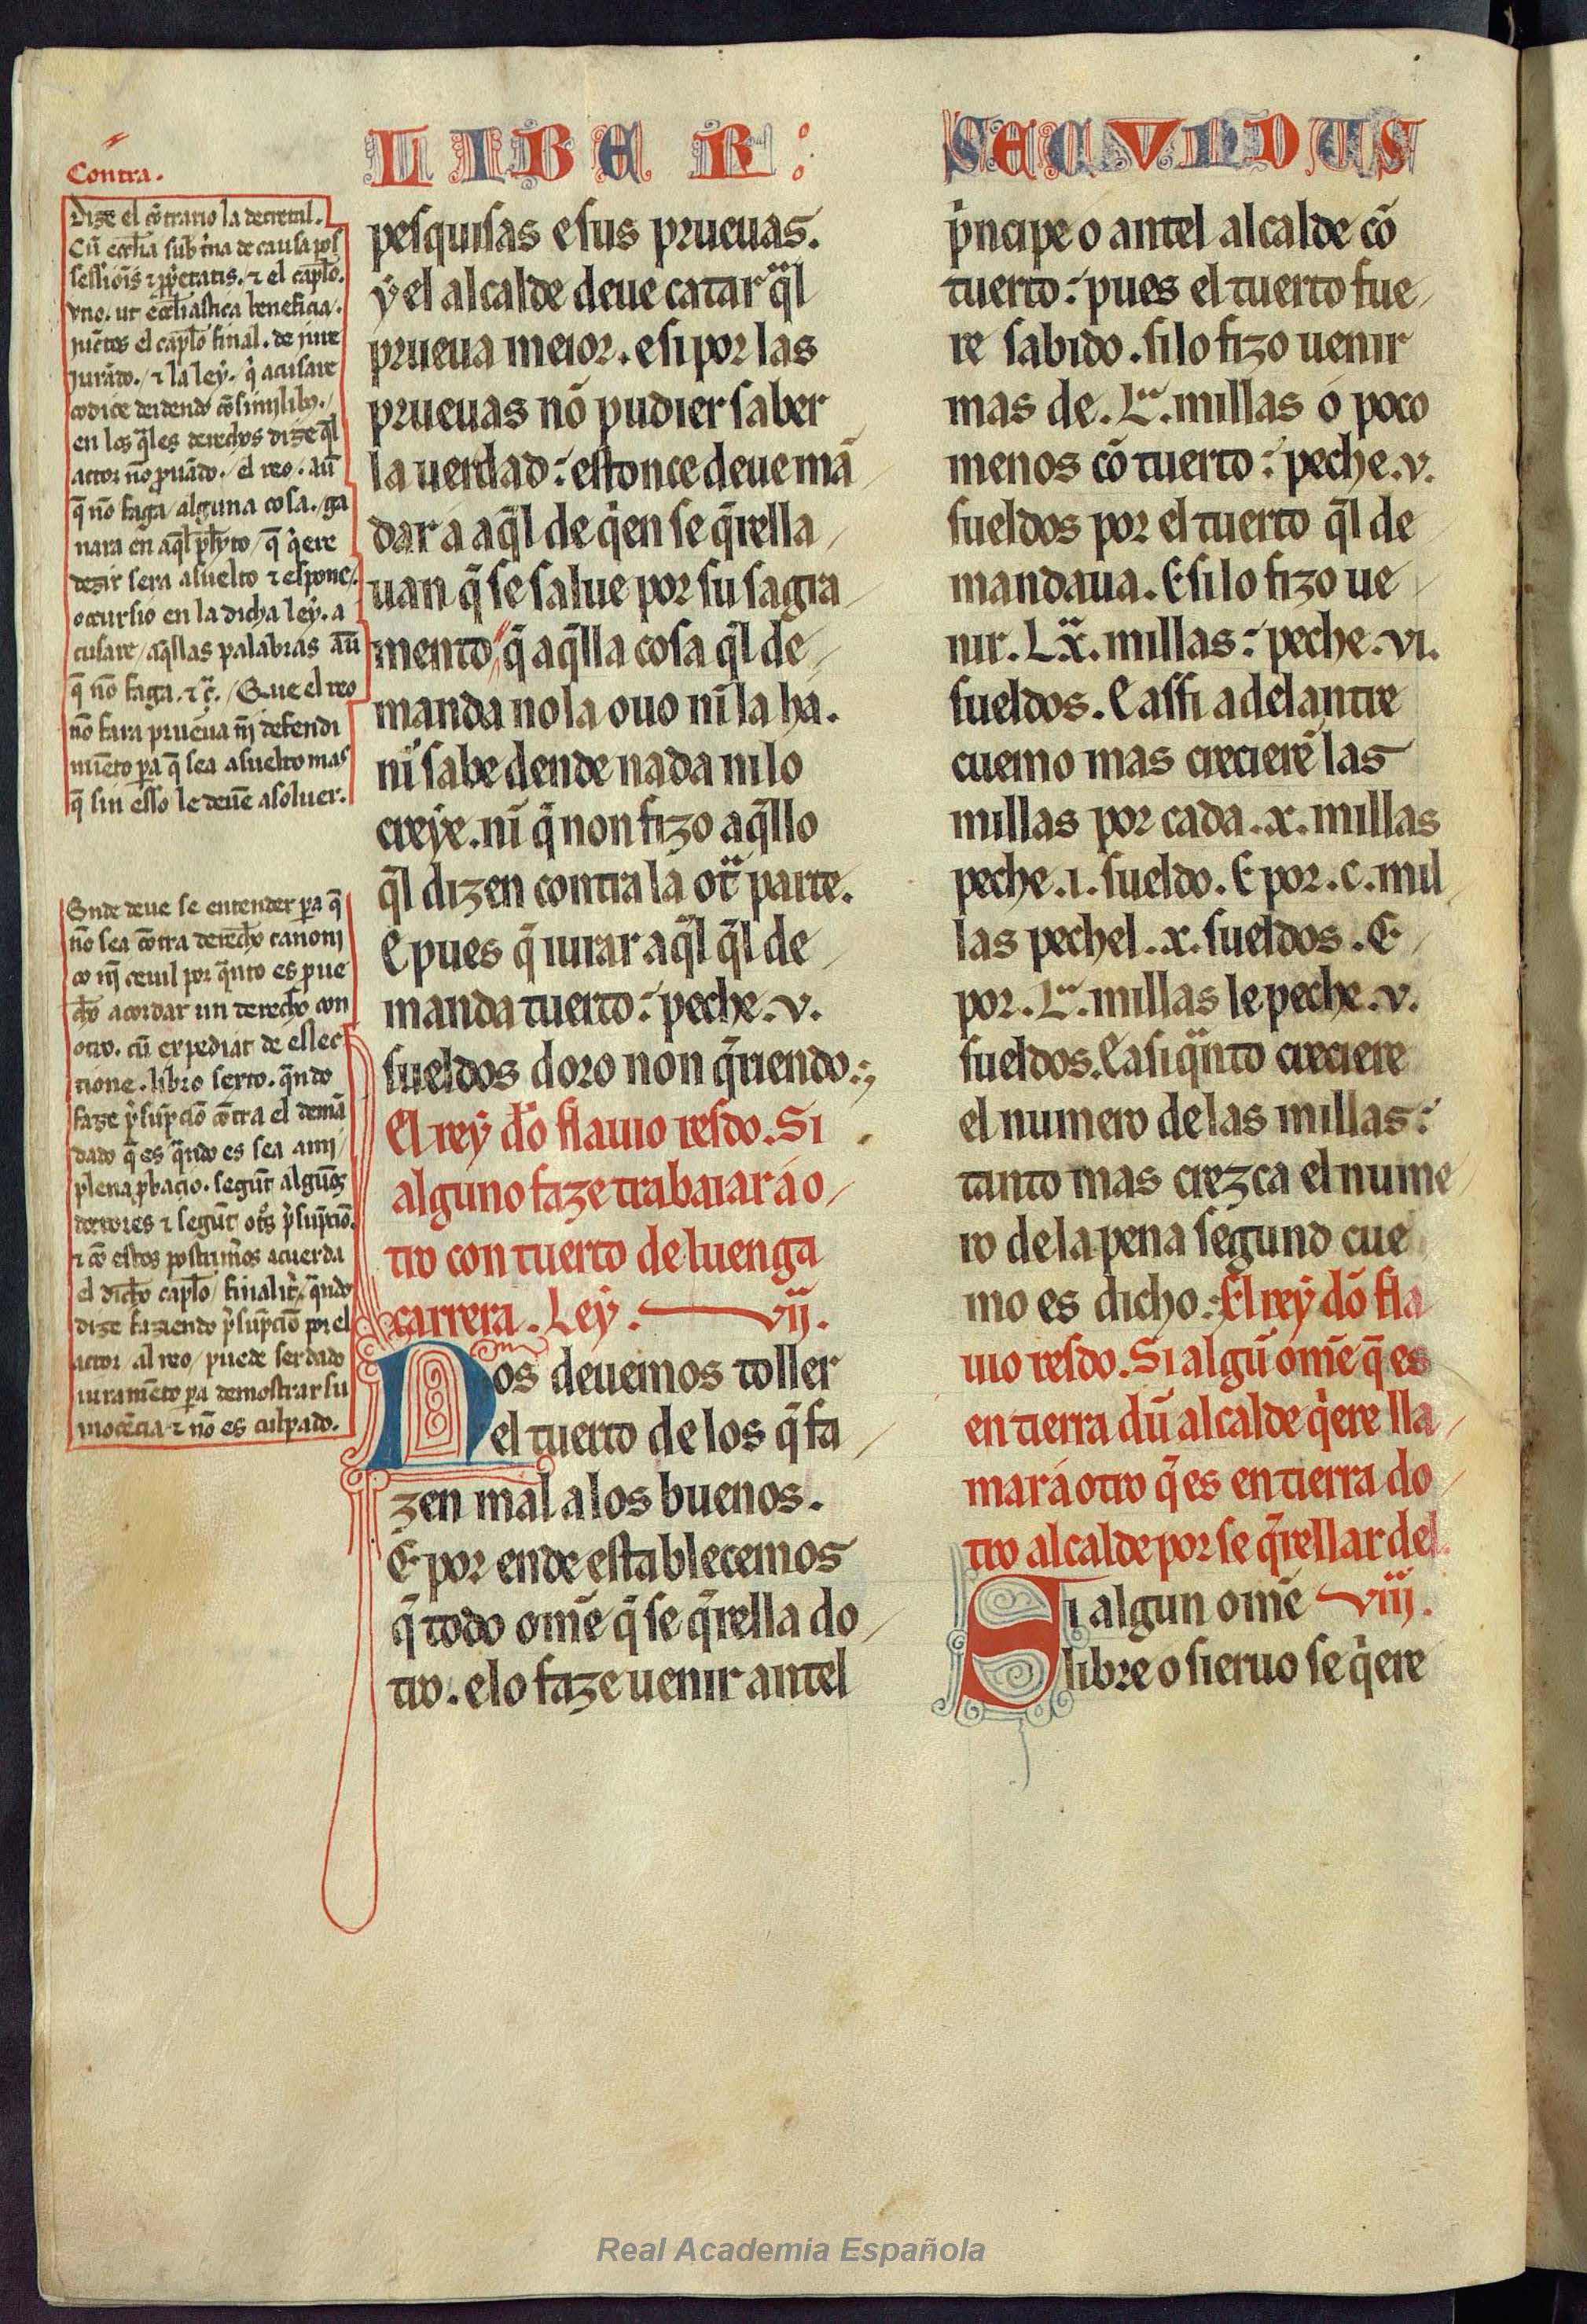 LIBER:
SECVNDUS
Contra.
Dize el cõtrario la decretal.
nara en aq̃l pleyto / q̃ q̃ere
dezir sera asuelto ⁊ espone /
ocursio en la dicha ley. a
cusare / aq̃llas palabras aũ
q̃ nõ faga. ⁊ c̃. / Que el reo
nõ fara prueua nĩ defendi
miẽto pa q̃ sea asuelto mas
q̃ sin esso le deuẽ asoluer.
Onde deue se entender pa q̃
nõ sea cõtra derecho canoni
co nĩ ceuil por q̃nto es proue
cho acordar un derecho con
otro. cũ expediat de ellec
tione. libro sexto. q̃ndo
faze p̃sũpciõ cõtra el demã
dado q̃ es q̃ndo es sea ami /
plena p̃bacio. segũt algũos
doctores ⁊ segũt ot̃s p̃sũpciõ.
⁊ cõ estos postrim̃os acuerda
el dicho caplo / finalit̃. q̃ndo
dize faziendo p̃sũpciõ por el
actor / al reo / puede ser dado
iuramẽto pa demostrar su
inocẽcia ⁊ nõ es culpado.
pesquisas e sus prueuas.
y el alcalde deue catar q̃l
prueua meior. e si por las
prueuas nõ pudier saber
la uerdad : estonce deue mã
dar a aq̃l de q̃en se q̃rella /
uan q̃ se salue por su sagra
mento q̃ aq̃lla cosa q̃l de /
manda no la ouo nĩ la ha.
nĩ sabe dende nada ni lo
creye. nĩ q̃ non fizo aq̃llo
q̃l dizen contra la ot̃ parte.
E pues q̃ iurar aq̃l q̃l de /
manda tuerto : peche. v.
sueldos doro non q̃riendo.
El rey dõ flauio resdo. Si
alguno faze trabaiar a o /
tro con tuerto de luenga
carrera. Ley. vij.
Nos deuemos toller
el tuerto de los q̃ fa /
zen mal a los buenos.
E por ende establecemos
q̃ todo omẽ q̃ se q̃rella do /
tro. e lo faze uenir antel
p̃ncipe o antel alcalde cõ
tuerto : pues el tuerto fue /
re sabido. si lo fizo uenir
mas de. L. millas o poco
menos cõ tuerto : peche. v.
sueldos por el tuerto q̃l de /
mandaua. E si lo fizo ue /
nir. Lx. millas : peche. vi.
sueldos. E assi adelantre
cuemo mas crecierẽ las
millas por cada. x. millas
peche. i. sueldo. E por. c. mil
las pechel. x. sueldos. E /
por. L. millas le peche. v.
sueldos. E asi q̃nto creciere
el numero de las millas :
tanto mas crezca el nume /
ro de la pena segund cue
mo es dicho. El rey dõ fla
uio resdo. Si algũ omẽ q̃ es
en tierra dũ alcalde q̃ere lla /
mar a otro q̃ es en tierra do /
tro alcalde por se q̃rellar del.
Si algun omẽ viij.
libre o sieruo se q̃ere
Real Academia Española